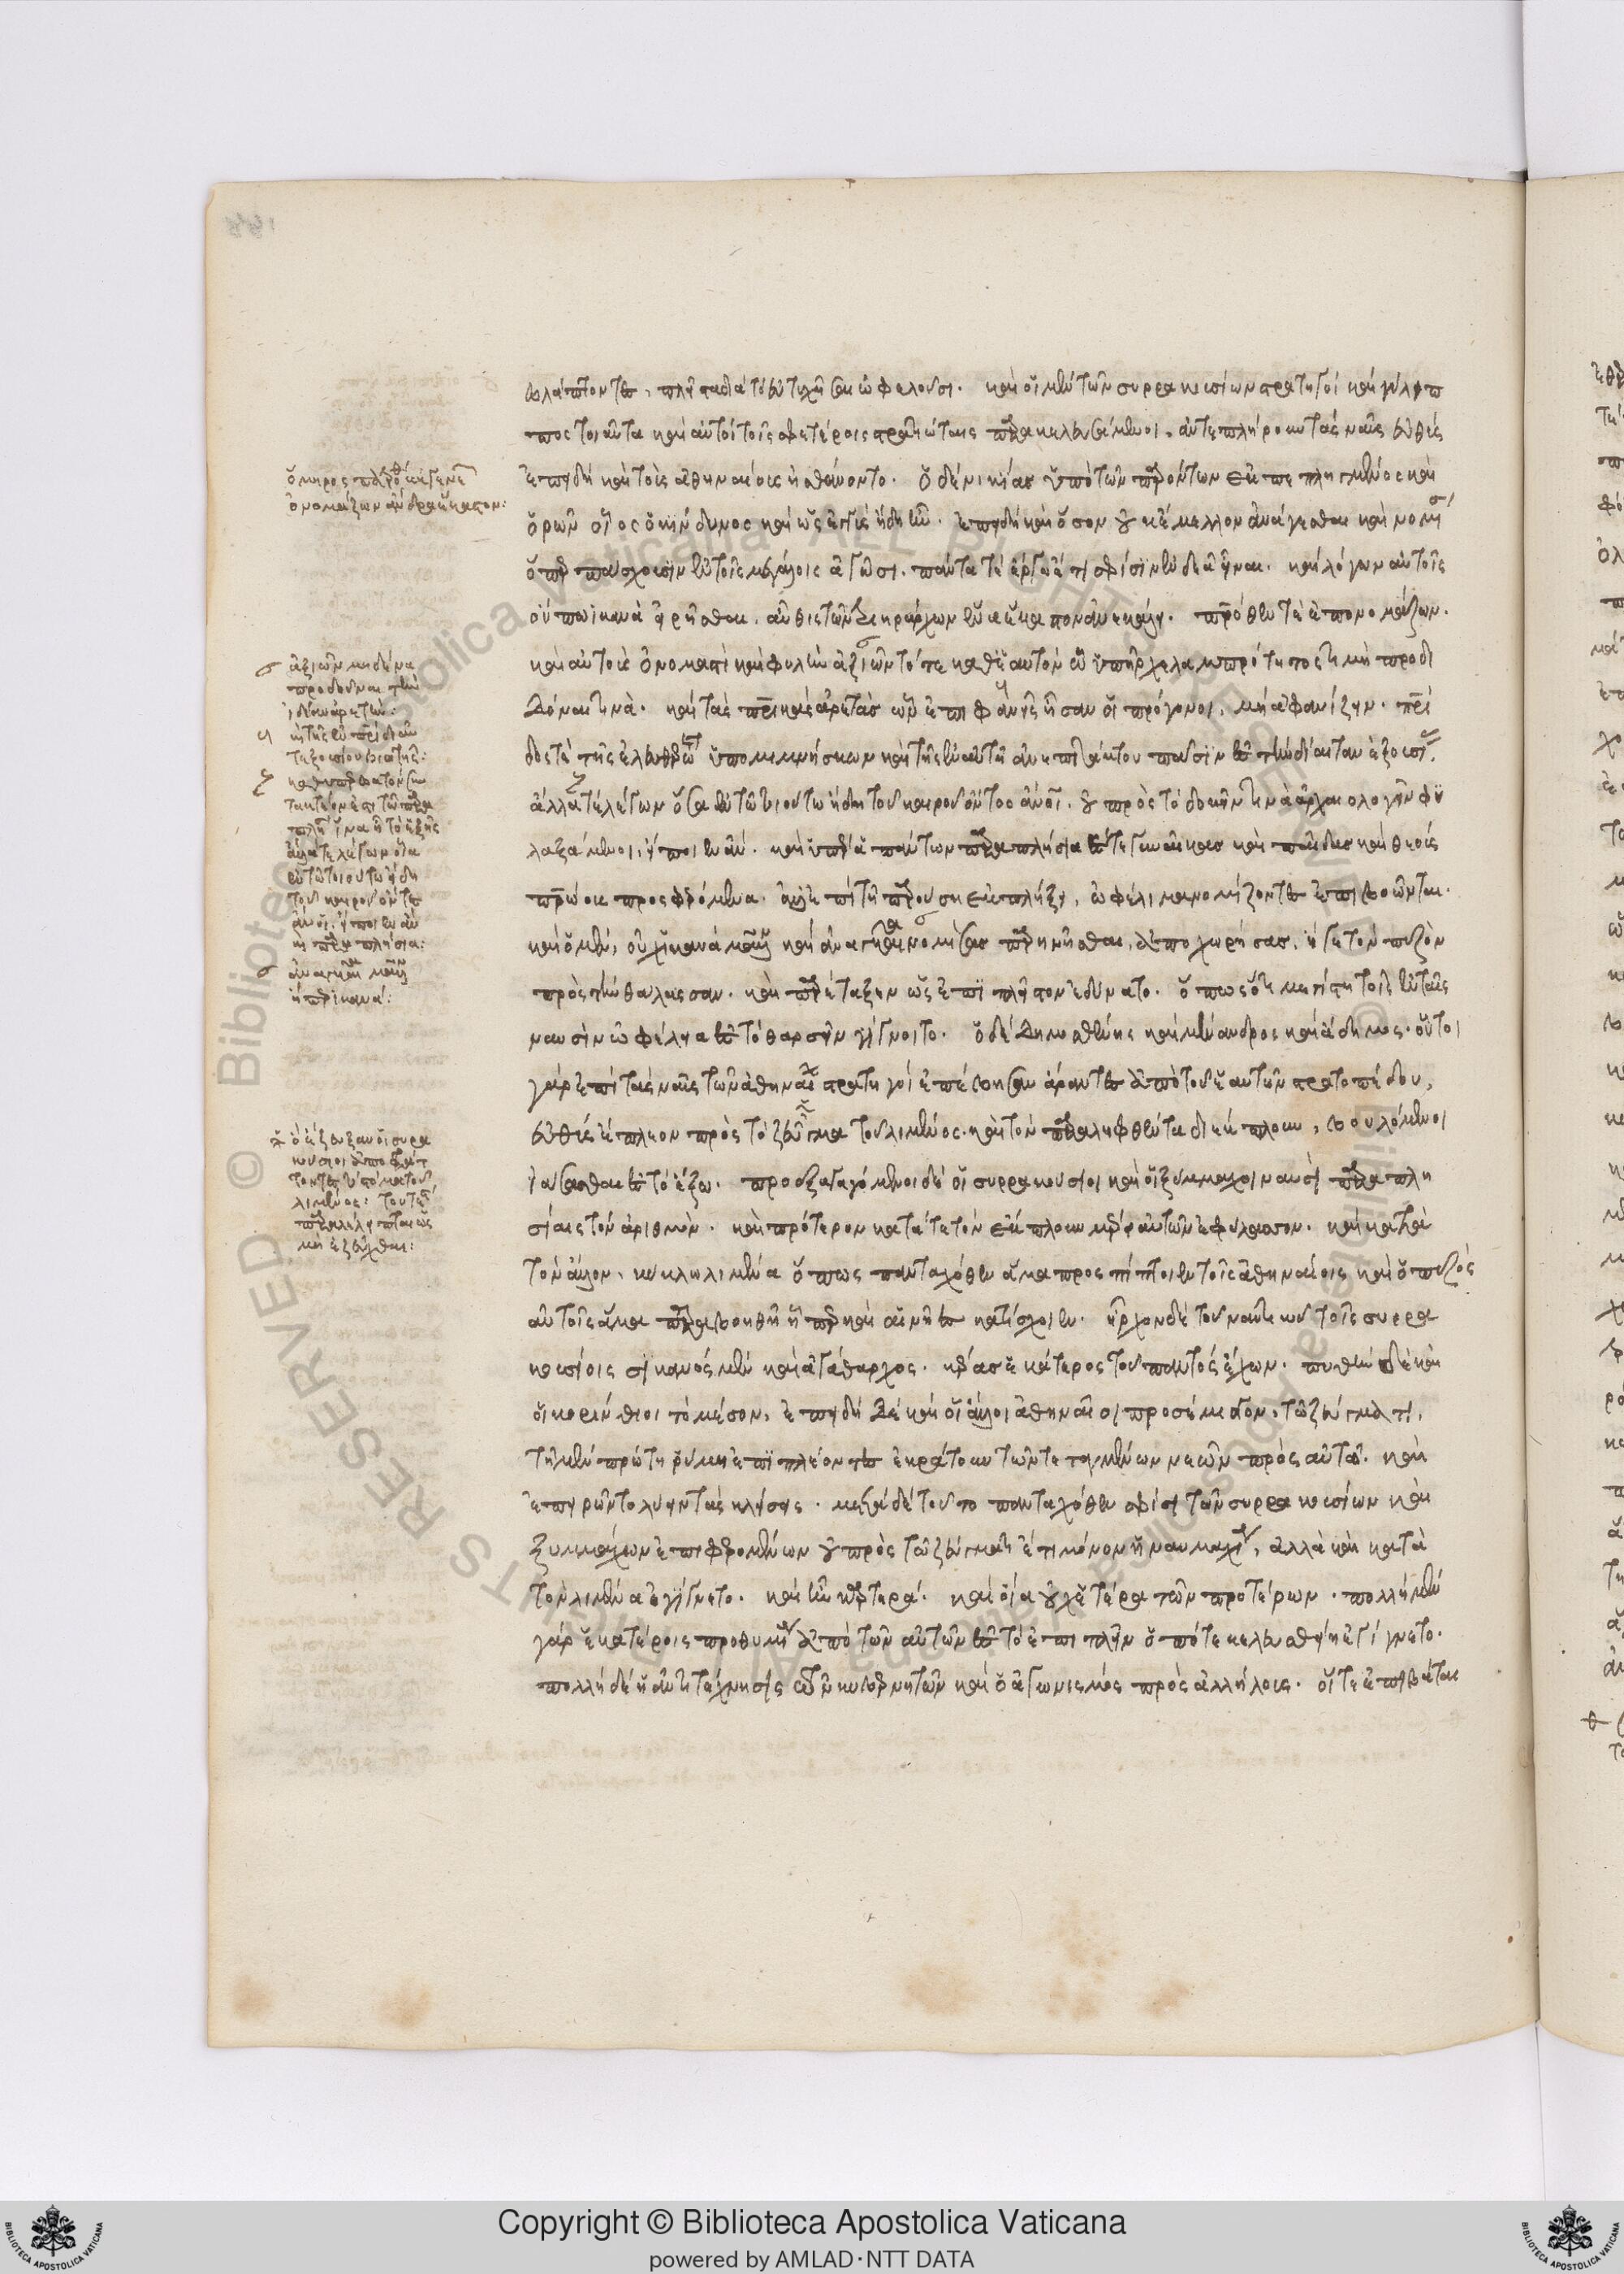 βλάπτοντες, πλεῖστα διὰ τὸ εὐτυχῆσαι ὠφελοῦσι. καὶ οἱ μὲν τῶν συρρακουσίων στρατηγοὶ καὶ γύλιπ
πος τοιαῦτα καὶ αὐτοὶ τοῖς σφετέροις στρατιώταις παρακελευσάμενοι, ἀντεπλήρουν τὰς ναῦς εὐθὺς
ἐπειδὴ καὶ τοὺς ἀθηναίους ᾐσθάνοντο. ὁ δὲ νικίας ὑπὸ τῶν παρόντων ἐκπεπληγμένος καὶ
ὁρῶν οἷος ὁ κίνδυνος καὶ ὡς ἐγγὺς ἤδη ἦν. ἐπειδὴ καὶ ὅσον οὐκ ἔμελλον ἀνάγεσθαι καὶ νομίσας
ὅπερ πάσχουσιν ἐν τοῖς μεγάλοις ἀγῶσι. πάντα τε ἔργῳ ἔτι σφίσιν ἐνδεᾶ εἶναι. καὶ λόγων αὐτοῖς
οὔπω ἱκανὰ εἰρῆσθαι. αὖθις τῶν τριηράρχων ἕνα ἕκαστον ἀνεκάλει. πατρόθεν τε ἐπονομάζων.
καὶ αὐτοὺς ὀνομαστὶ καὶ φυλὴν ἀξιῶν τό τε καθ' ἑαυτὸν ᾧ ὑπῆρχε λαμπρότητός τι μὴ προδι
δόναι τινὰ. καὶ τὰς πατρικὰς ἀρετὰς ὧν ἐπιφανεῖς ἦσαν οἱ πρόγονοι, μὴ ἀφανίζειν. πατρί
δος τὲ τῆς ἐλευθερωτάτης ὑπομιμνήσκων καὶ τῆς ἐν αὐτῇ ἀνεπιτάκτου πᾶσιν ἐς τὴν δίαιταν ἐξουσίας.
ἄλλα τὲ λέγων ὅσα ἐν τῷ τοιούτῳ ἤδη τοῦ καιροῦ ὄντες ἄνθρωποι. οὐ πρὸς τὸ δοκεῖν τινὰ ἀρχαιολογεῖν φυ
λαξάμενοι, εἴποιεν ἄν. καὶ ὑπὲρ ἁπάντων παραπλήσια ἔς τε γυναῖκας καὶ παῖδας καὶ θεοὺς
πατρῴους προσφερόμενα. ἀλλ' ἐπὶ τῇ παρούσῃ ἐκπλήξει, ὠφέλιμα νομίζοντες ἐπιβοῶνται.
καὶ ὁ μὲν, οὐχ ἱκανὰ μᾶλλον καὶ ἀναγκαῖα νομίσας παρῃνῆσθαι, ἀποχωρήσας, ἦγε τὸν πεζὸν
πρὸς τὴν θάλασσαν. καὶ παρέταξεν ὡς ἐπὶ πλεῖστον ἐδύνατο. ὅπως ὅτι μεγίστη τοῖς ἐν ταῖς
ναυσὶν ὠφέλεια ἐς τὸ θαρσεῖν γίγνοιτο. ὁ δὲ δημοσθένης καὶ μένανδρος καὶ εὔδημος. οὗτοι
γὰρ ἐπὶ τὰς ναῦς τῶν ἀθηναίων στρατηγοὶ ἐπέβησαν ἄραντες ἀπὸ τοῦ ἑαυτῶν στρατοπέδου,
εὐθὺς ἔπλεον πρὸς τὸ ζεῦγμα τοῦ λιμένος. καὶ τὸν παραλειφθέντα διέκπλουν, βουλόμενοι
βιάσασθαι ἐς τὸ ἔξω. προεξαγαγόμενοι δὲ οἱ συρρακούσιοι καὶ οἱ ξύμμαχοι ναυσὶ παραπλη
σίαις τὸν ἀριθμὸν. καὶ πρότερον κατά τε τὸν ἔκπλουν μέρει αὐτῶν ἐφύλασσον. καὶ κατὰ
τὸν ἄλλον, κύκλῳ λιμένα ὅπως πανταχόθεν ἅμα προσπίπτοιεν τοῖς ἀθηναίοις καὶ ὁ πεζὸς
αὐτοῖς ἅμα παραβοηθῇ ᾗπερ καὶ αἱ νῆες κατίσχοιεν. ἦρχον δὲ τοῦ ναυτικοῦ τοῖς συρρα
κουσίοις σικανὸς μὲν καὶ ἀγάθαρχος. κέρας ἑκάτερος τοῦ παντὸς ἔχων. πυθὴν δὲ καὶ
οἱ κορίνθιοι τὸ μέσον. ἐπειδὴ δὲ καὶ οἱ ἄλλοι ἀθηναῖοι προσέμισγον, τῷ ζεύγματι,
τῇ μὲν πρώτῃ ῥύμῃ ἐπιπλέοντες ἐκράτουν τῶν τεταγμένων νεῶν πρὸς αὐτῷ. καὶ
ἐπειρῶντο λύειν τὰς κλῄσεις. μετὰ δὲ τοῦτο πανταχόθεν σφίσι τῶν συρρακουσίων καὶ
ξυμμάχων ἐπιφερομένων οὐ πρὸς τῷ ζεύγματι ἔτι μόνον ἡ ναυμαχία, ἀλλὰ καὶ κατὰ
τὸν λιμένα ἐγίγνετο. καὶ ἦν καρτερά. καὶ οἵα οὐχ ἑτέρα τῶν προτέρων. πολλὴ μὲν
γὰρ ἑκατέροις προθυμία ἀπὸ τῶν αὐτῶν ἐς τὸ ἐπιπλεῖν ὁπότε κελευσθείη ἐγίγνετο.
πολλὴ δὲ ἡ ἀντιτέχνησις τῶν κυβερνητῶν καὶ ὁ ἀγωνισμὸς πρὸς ἀλλήλους. οἵ τε ἐπιβάται
ὅμηρος πατρόθεν ἐκ γενεῆς
ὀνομάζων ἄνδρα ἕκαστον:
ἀξιῶν μηδένα
προδοῦναι τὴν
ἰδίαν ἀρετήν:
τὸν
ἄλλά τε λέγων ὅσα
ἐν τῷ τοιούτῳ ἤδη
τοῦ καιροῦ ὄντες
ἄνθρωποι. εἴποιεν ἂν
καὶ παραπλήσια:
ἀναγκαῖα μᾶλλον
ἤπερ ἱκανά:
ὃ ἔζευξαν οἱ συρα
κούσιοι ἀποφράτ
τοντες τὸ στόμα τοῦ
λιμένος: τουτέστι
παραλέλειπται ὡς
μὴ ἐζεῦχθαι: